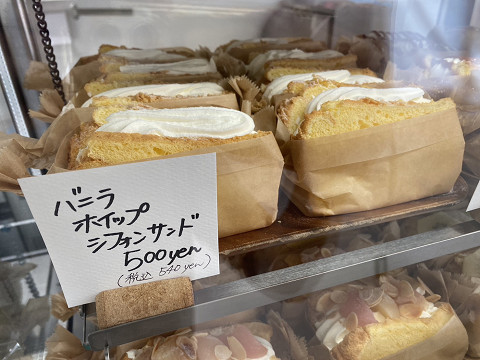 バニラ
ホイップ
シフォンサンド
500yen
(税込 540yen)